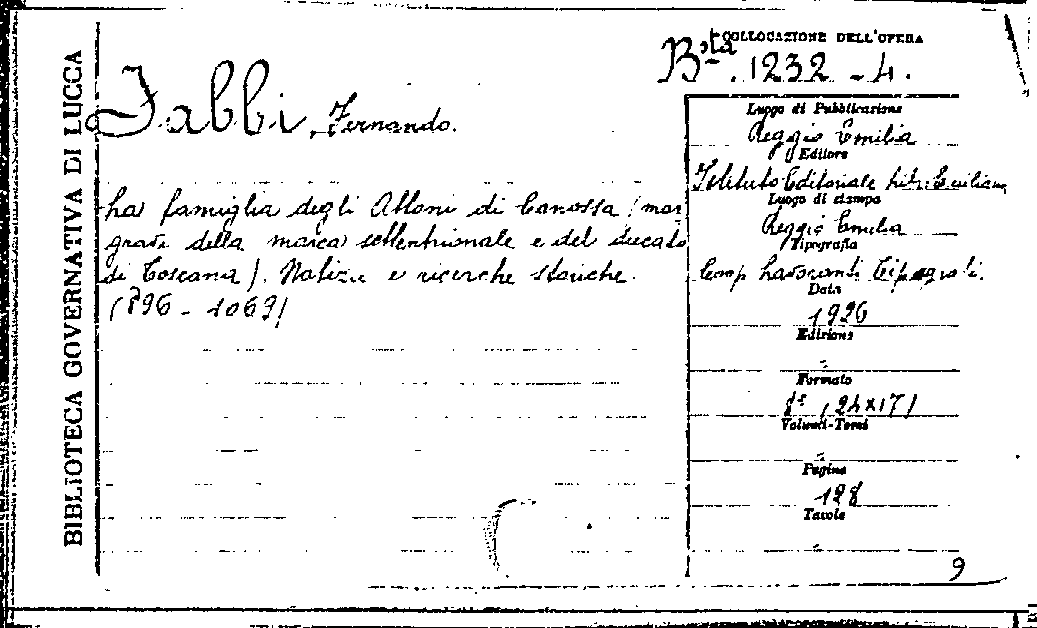 BIBLIOTECA GOVERNATIVA DI LUCCA
COLLOCAZIONE DELL'OPERA
B.ta 1232 - 4.
Fabbi, Fernando.
La famiglia degli Attoni di Canossa (mar
gravi della marca settentrionale e del ducato
di Toscana). Notizie e ricerche storiche.
(896 - 1069)
Luogo di Pubblicazione
Reggio Emilia
Editore
Istituto Editoriale Lib. Emiliano
Luogo di stampa
Reggio Emilia
Tipografia
Comp. Lavoranti Tipografi.
Data
1926
Edizione
-
Formato
8° (24x17)
Volumi-Tomi
-
Pagine
128
Tavole
-
9